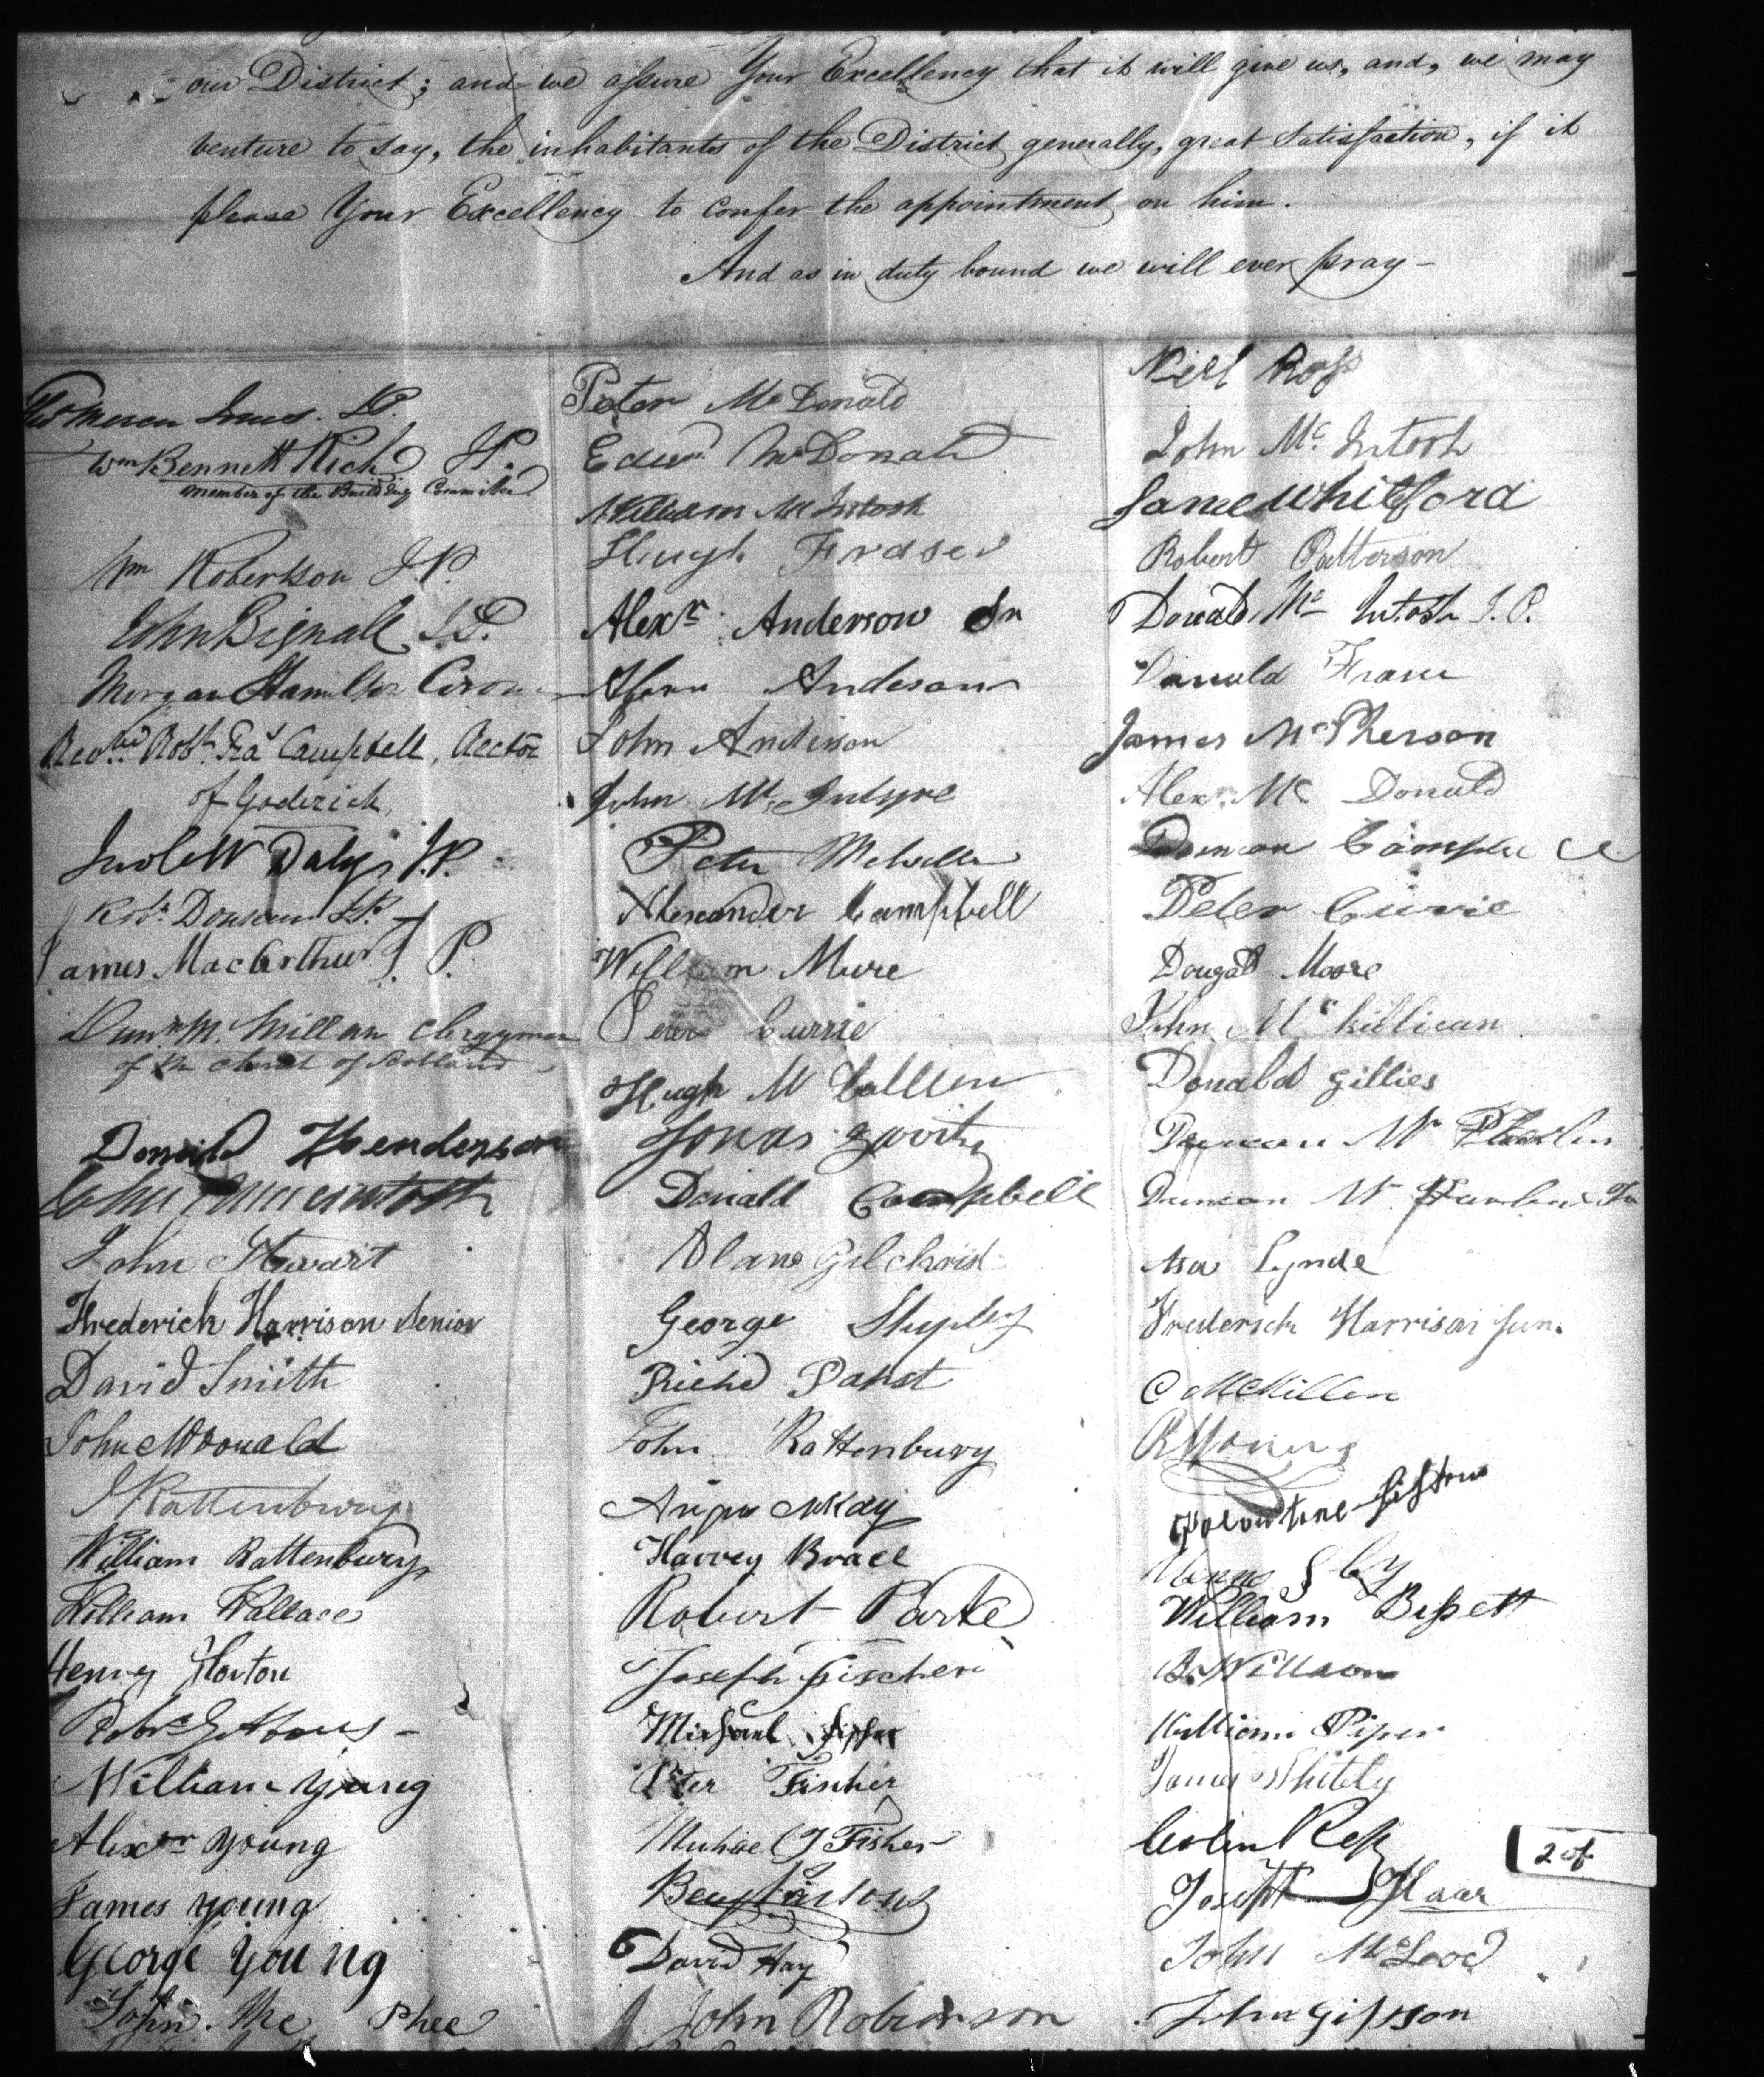 our District; and we assure Your Excellency that it will give us, and, we may
venture to say, the inhabitants of the District generally, great satisfaction, if it
please Your Excellency to confer the appointment on him.
And as in duty bound we will ever pray —
J.P.
Wm Bennett Rich J.P.
Member of the Building Committee
Wm Robertson J.P.
John Bignall J.P.
Morgan Hamilton
Revd. Robt. Fra Campbell, Rector
of Goderich,
Daly J.P.
Robt. J.P.
James MacArthur J.P.
Dun. McMillan Clergyman
of the Church of Scotland
Donald Henderson
John
John Stewart
Frederick Harrison Senior
David Smith
John McDonald
J Rattenbury
William Rattenbury
William Wallace
Henry Horton
Robt Gibbons
William Young
Alexr Young
James Young
George Young
John Mc Phee
Peter McDonald
Edwd McDonald
William McIntosh
Hugh Fraser
Alexr. Anderson Sr
Anderson
John Anderson
John McIntyre
Peter
Alexander Campbell
William Mure
Peter Currie
Hugh McCallum
Jonas
Donald Campbell
Alan Gilchrist
George
Richd Pabst
John Rattenbury
Angus McKay
Harvey Brace
Robert Parke
Joseph Fischer
Michael
Peter Fisher
Michael G Fisher
Benj Parsons
David Hay
John Robinson
Neil Ross
John McIntosh
James Whitford
Robert Patterson
Donald Mc Intosh J.P.
Donald Fraser
James McPherson
Alexr. Mc Donald
Duncan Campbell
Peter Currie
Dougald Moore
John McKillican
Donald Gillies
Duncan Mc
Duncan Mc
Asa Lynde
Frederick Harrison Jun.
C McMillen
R Young
William Bissett
B. Willson
William Piper
James Whitely
Colin Ross
Joseph Haar
John McLeod
John Gibson
2 of